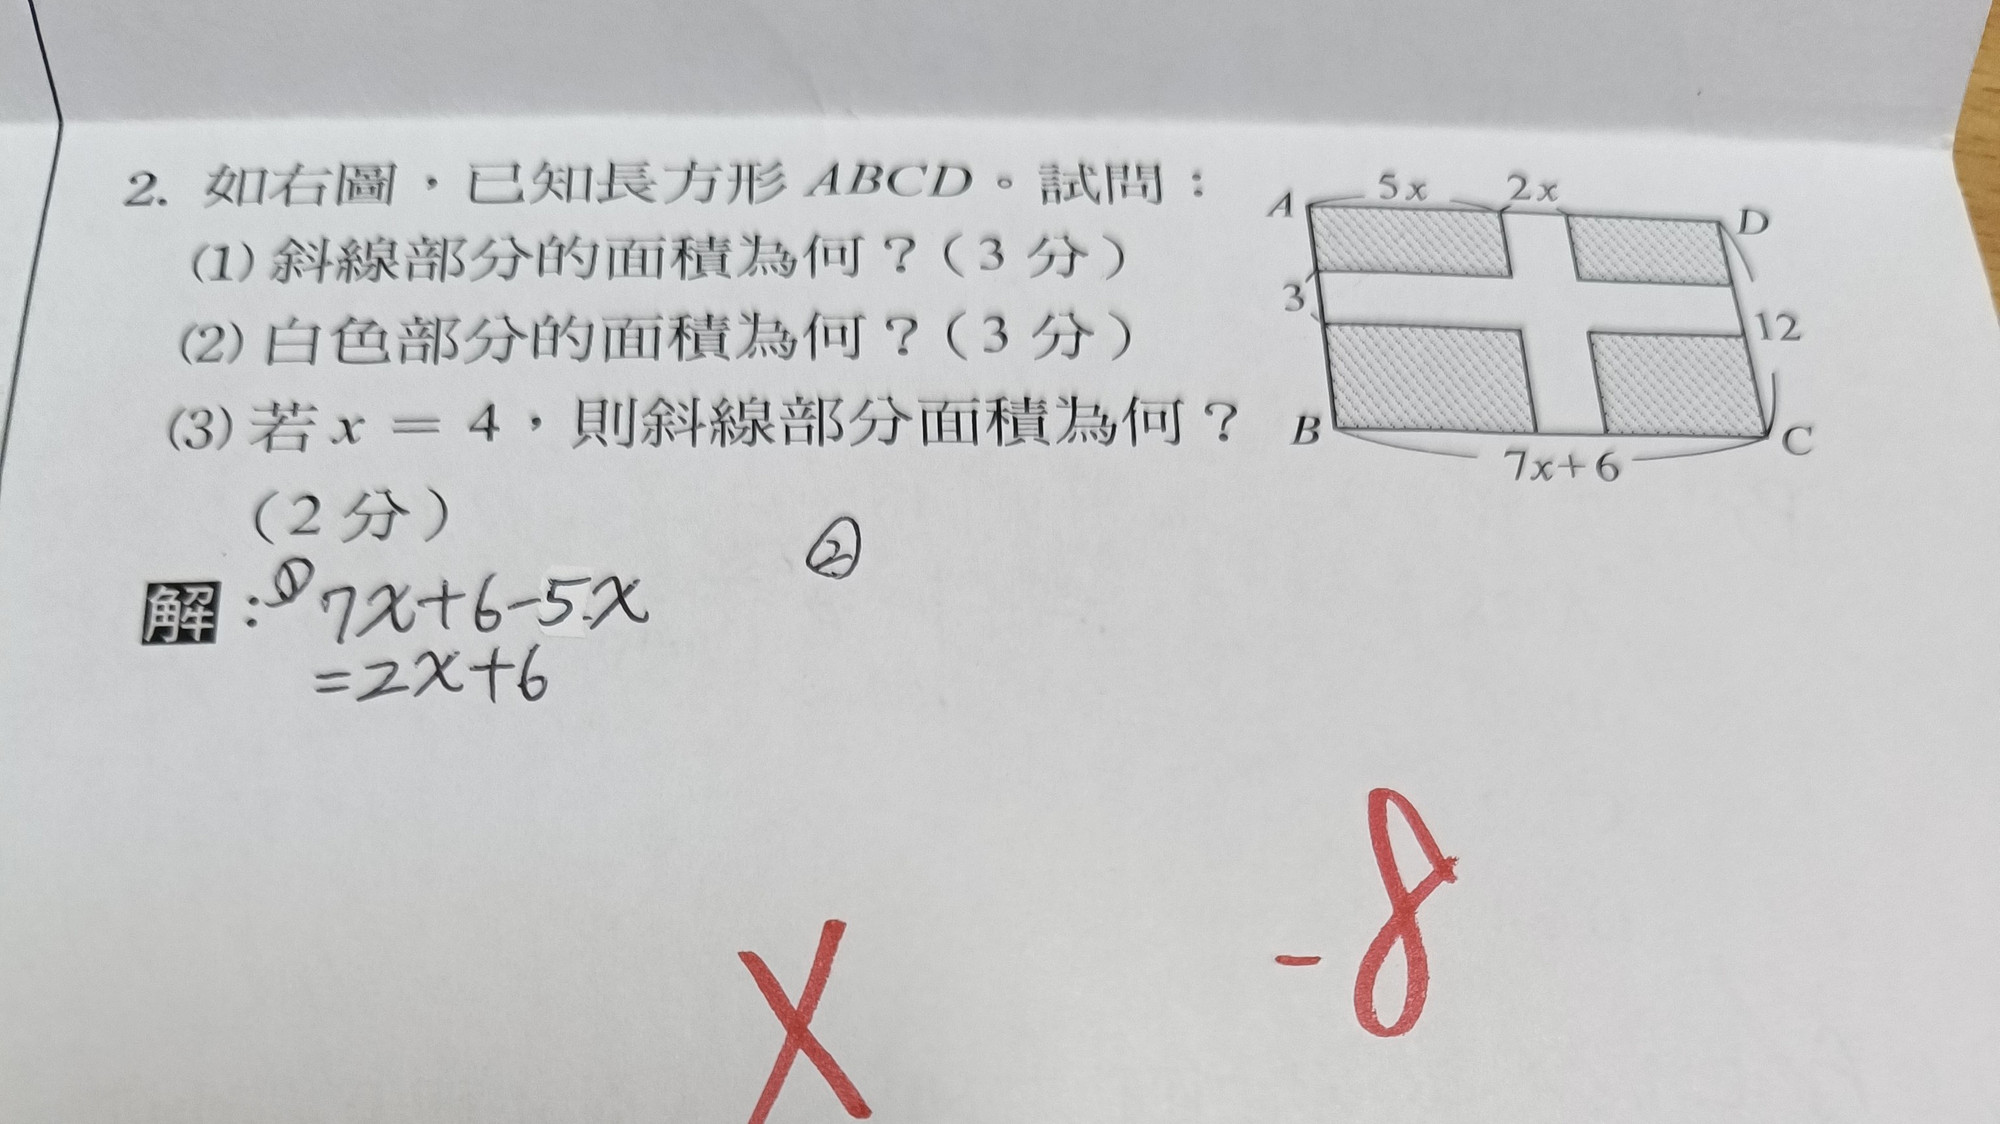 2. 如右圖，已知長方形ABCD。試問：
(1) 斜線部分的面積為何？(3分)
(2) 白色部分的面積為何？(3分)
(3) 若x = 4，則斜線部分面積為何？
(2分)
A 5x 2x D
3 12
B 7x+6 C
解：① 7x+6-5x
=2x+6
②
X
-8